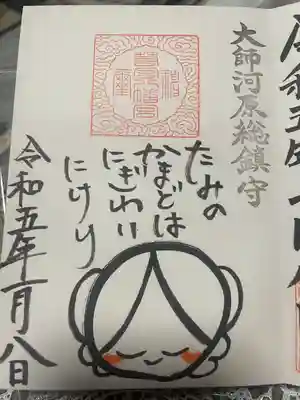 大師河原総鎮守
たみの
かまどは
にぎわい
にけり
令和五年一月八日